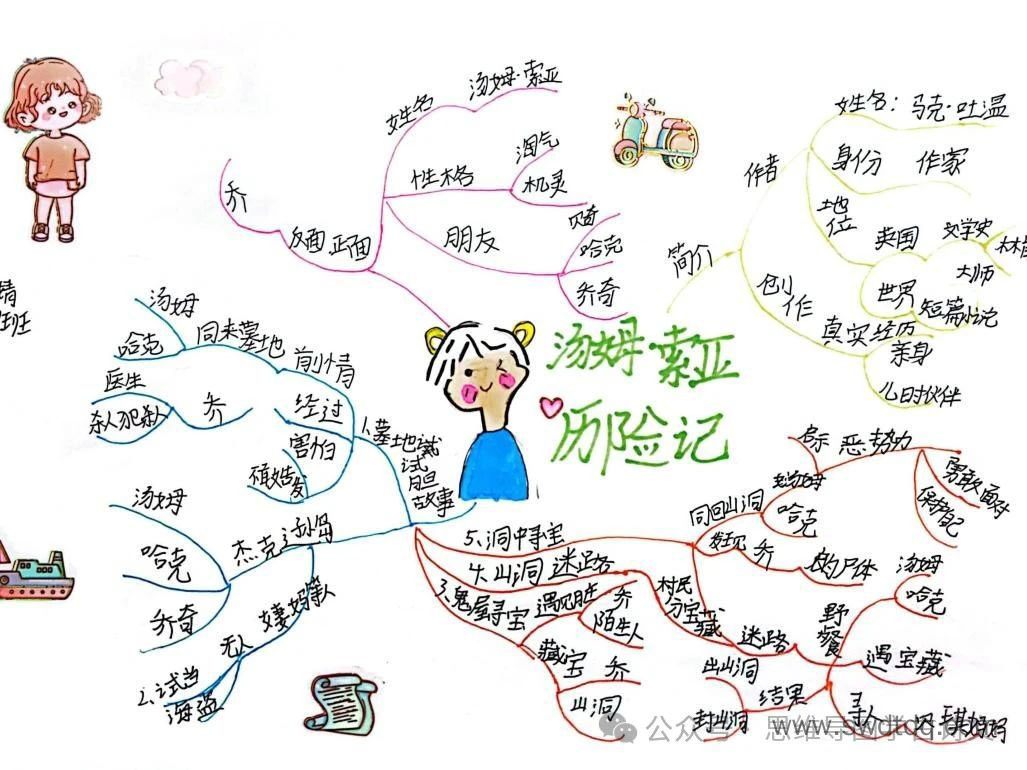 汤姆·索亚
历险记
姓名
汤姆·索亚
性格
淘气
机灵
朋友
贝奇
哈克
乔奇
正面
反面
乔
简介
作者
姓名：马克·吐温
身份 作家
地位
英国
文学史
世界
大师
短篇小说
创作
真实经历
亲身
儿时伙伴
1.墓地试
试胆
故事
前情
同来墓地
汤姆
哈克
经过
乔
医生
杀人犯杀人
害怕
不敢告发
杰克逊岛
汤姆
哈克
乔奇
2.试当
海盗
无人
5、洞中寻宝
同回山洞
汤姆
哈克
乔
的尸体
启示 恶势力
勇敢面对
保护自己
4.山洞迷路
村民
分宝藏
迷路
野餐
汤姆
哈克
遇宝藏
寻人
结果
出山洞
封山洞
3、鬼屋寻宝
遇见
乔
陌生人
藏宝
乔
山洞
班
公众号
www.swdtdq.